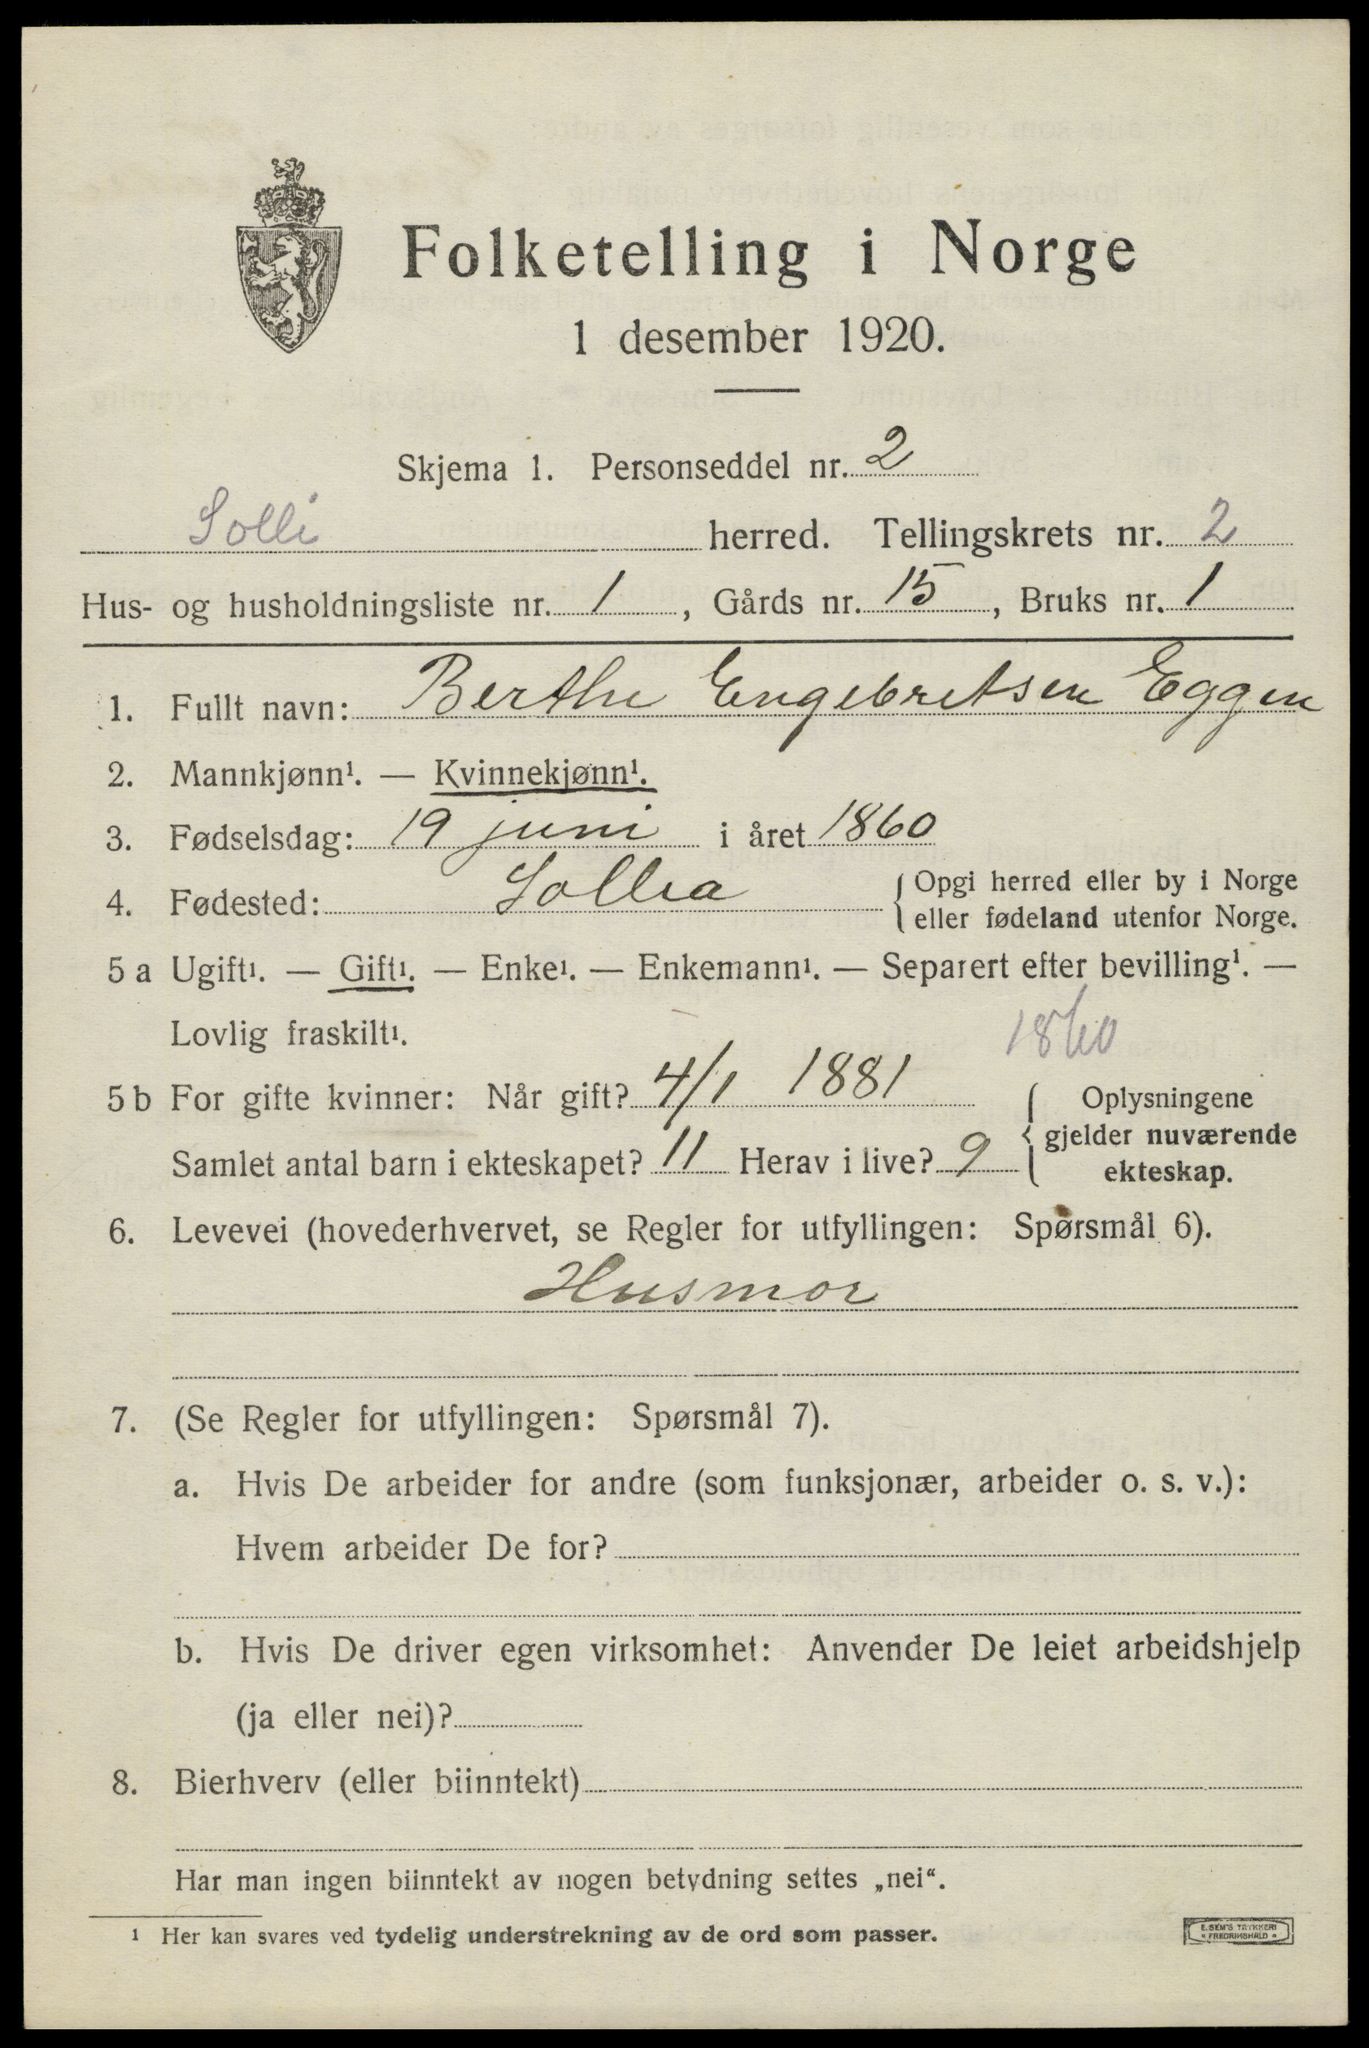 Folketelling i Norge
1 desember 1920.
Skjema 1. Personseddel nr. 2
Solli herred. Tellingskrets nr. 2
Hus- og husholdningsliste nr. 1, Gårds nr. 15, Bruks nr. 1
1. Fullt navn: Berthe Engebretsen Eggen
2. Mannkjønn¹. — Kvinnekjønn¹.
3. Fødselsdag: 19 juni i året 1860
4. Fødested: Sollia { Opgi herred eller by i Norge
eller fødeland utenfor Norge.
5 a Ugift¹. — Gift¹. — Enke¹. — Enkemann¹. — Separert efter bevilling¹. —
Lovlig fraskilt¹.
1860
5 b For gifte kvinner: Når gift? 4/1 1881 { Oplysningene
gjelder nuværende
Samlet antal barn i ekteskapet? 11 Herav i live? 9
ekteskap.
6. Levevei (hovederhvervet, se Regler for utfyllingen: Spørsmål 6).
Husmor
7. (Se Regler for utfyllingen: Spørsmål 7).
a. Hvis De arbeider for andre (som funksjonær, arbeider o. s. v.):
Hvem arbeider De for?
b. Hvis De driver egen virksomhet: Anvender De leiet arbeidshjelp
(ja eller nei)?
8. Bierhverv (eller biinntekt)
Har man ingen biinntekt av nogen betydning settes „nei“.
¹ Her kan svares ved tydelig understrekning av de ord som passer.
E. SEM'S TRYKKERI
FREDRIKSHALD